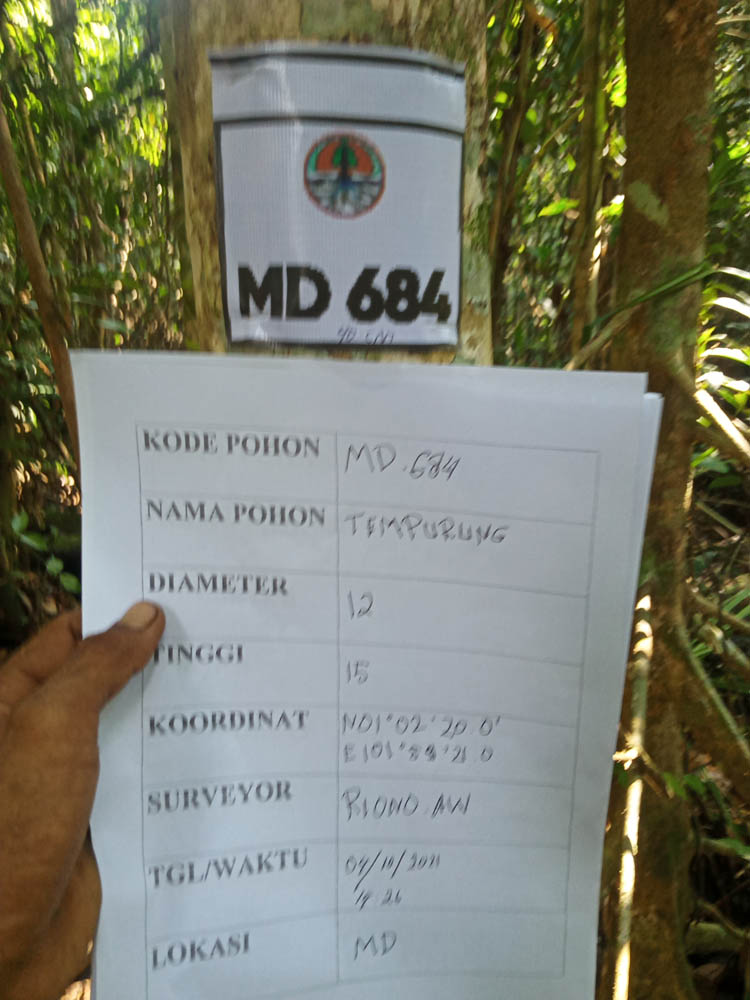 MD 684
KODE POHON MD.684
NAMA POHON TEMPURUNG
DIAMETER 12
TINGGI 15
KOORDINAT N01°02'20.0'
E101°
SURVEYOR RIONO.AW
TGL/WAKTU 04/10/2021
14 26
LOKASI MD